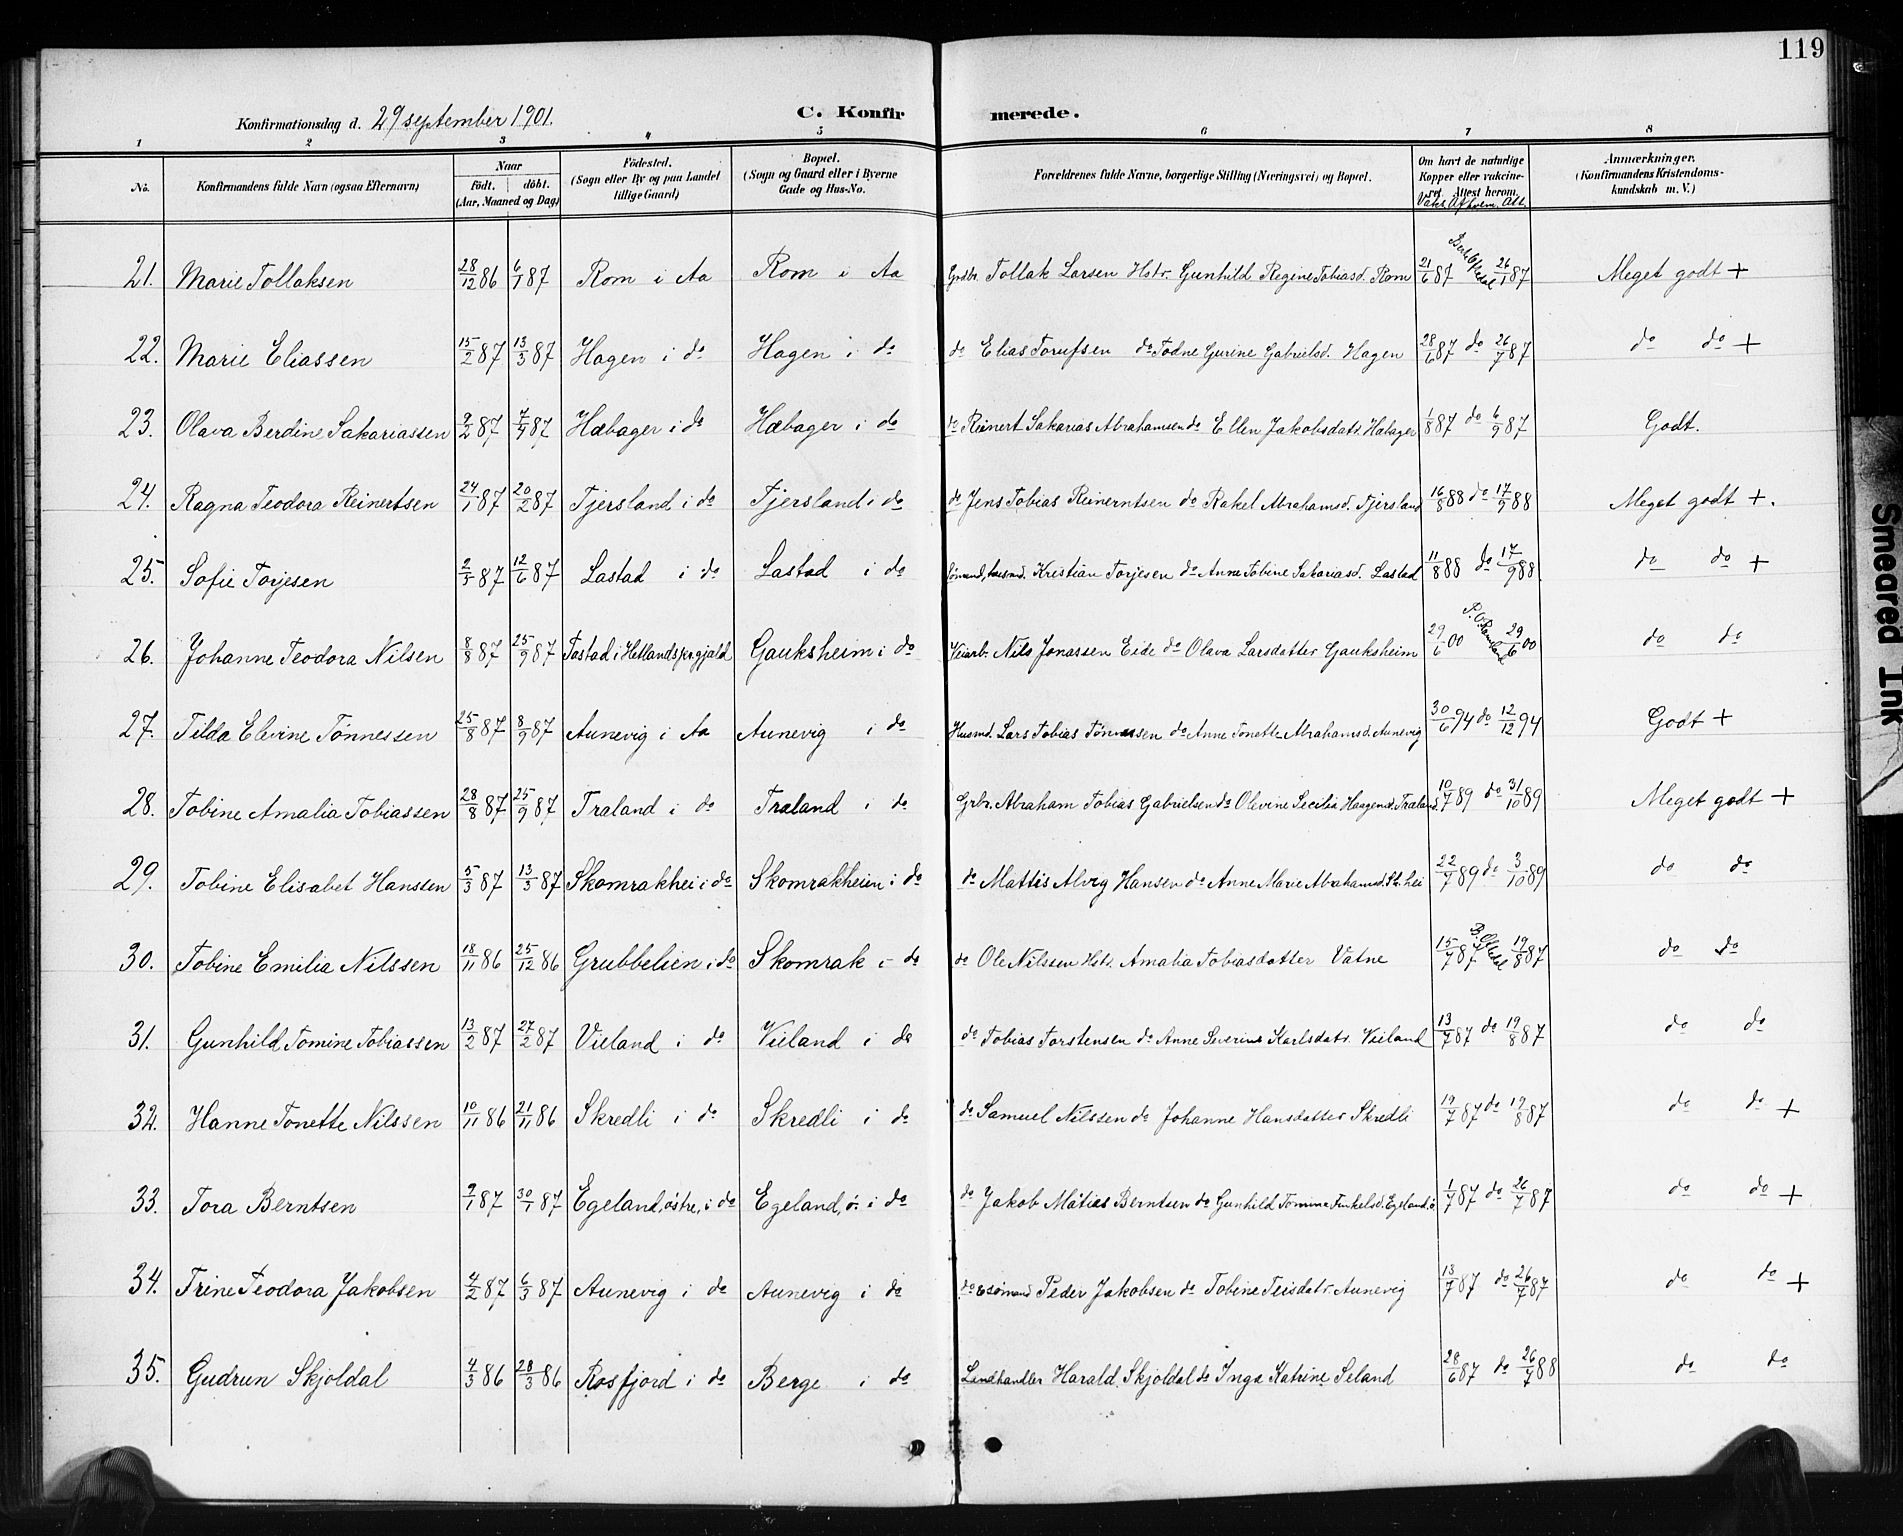 119
Konfirmationsdag d. 29 september 1901. C. Konfirmerede.
1 2 3 4 5 6 7 8
No. Konfirmandens fulde Navn (ogsaa Efternavn) Naar födt. döbt. (Aar, Maaned og Dag) Födested. (Sogn eller By og paa Landet tillige Gaard) Bopæl. (Sogn og Gaard eller i Byerne Gade og Hus-No. Forældrenes fulde Navne, borgerlige Stilling (Næringsvei) og Bopæl. Om havt de naturlige Kopper eller vaccineret. Attest herom. Vaks. Af hvem. Att. Anmærkninger. (Konfirmandens Kristendomskundskab m. V.)
21. Marie Tollaksen 28/12 86 6/1 87 Rom i Aa Rom i Aa Grdbr. Tollak Larsen Hstr. Gunhild Regine Tobiasd. Rom 21/6 87 26/1 87 Meget godt +
22. Marie Eliassen 15/2 87 13/3 87 Hagen i do Hagen i do do Elias Torufsen do Todne Gurine Gabrielsd. Hagen 28/6 87 do 26/7 87 do do +
23. Olava Berdine Sakariassen 2/2 87 87 Hæbager i do Hæbager i do do Reinert Sakarias Abrahamsen do Ellen Jakobsdatr. Hæbager 1/8 87 do 6/9 87 Godt.
24. Ragna Teodora Reinertsen 24/1 87 20/2 87 Tjersland i do Tjersland i do do Jens Tobias Reinerntsen do Rakel Abrahamsd. Tjersland 16/8 88 do 17/9 88 Meget godt +.
25. Sofie Torjesen 2/5 87 12/6 87 Lastad i do Lastad i do Sömand, husmd. Kristian Torjesen do Anne Tobine Sakariasd. Lastad 11/8 88 do 17/9 88. do do +
26. Johanne Teodora Nilsen 8/8 87 25/9 87 Tastad i Hetlands pr.gjæld Gauksheim i do Veiarb. Nils Jonassen Eide do Olava Larsdatter Gauksheim 29/6 00 29/6 00 do do
27. Tilda Elevine Tönnessen 25/8 87 8/9 87 Aunevig i Aa Aunevig i do Husmd. Lars Tobias Tönnessen do Anne Tonette Abrahamsd. Aunevig 30/6 94 do 12/12 94 Godt +
28. Tobine Amalia Tobiassen 28/8 87 25/9 87 Træland i do Træland i do Grbr. Abraham Tobias Gabrielsen do Olevine Secilia Haagensd. Træland 10/7 89 do 31/10 89 Meget godt +
29. Tobine Elisabet Hansen 5/3 87 13/3 87 Skomrakhei i do Skomrakheien i do do Mattis Alvig Hansen do Anne Marie Abrahamsd. Sk.hei 22/7 89 do 3/10 89 do do
30. Tobine Emilia Nilssen 18/11 86 25/12 86 Grubbelien i do Skomrak i do do Ole Nilssen Hstr. Amalia Tobiasdatter Vatne 15/7 87 19/8 87 do do
31. Gunhild Tomine Tobiassen 13/2 87 27/2 87 Vieland i do Vieland i do do Tobias Torstensen do Anne Severine Karlsdatr. Vieland 13/7 87 do 19/8 87 do do
32. Hanne Tonette Nilssen 10/11 86 21/11 86 Skredli i do Skredli i do do Samuel Nilssen do Johanne Hansdatter Skredli 19/7 87 do 19/8 87 do do +
33. Tora Berntsen 9/1 87 30/1 87 Egeland, östre, i do Egeland, ö. i do do Jakob Matias Berntsen do Gunhild Tomine Egeland, ö 1/7 87 do 26/7 87 do do +
34. Trine Teodora Jakobsen 4/2 87 6/3 87 Aunevig i do Aunevig i do do Peder Jakobsen do Tobine Teisdatr. Aunevig 13/7 87 do 26/7 87 do do +
35. Gudrun Skjoldal 4/3 86 28/3 86 Rosfjord i do Berge i do Landhandler Harald Skjoldal do Inga Katrine Seland 28/6 87 do 26/7 88 do do
Smeared Ink